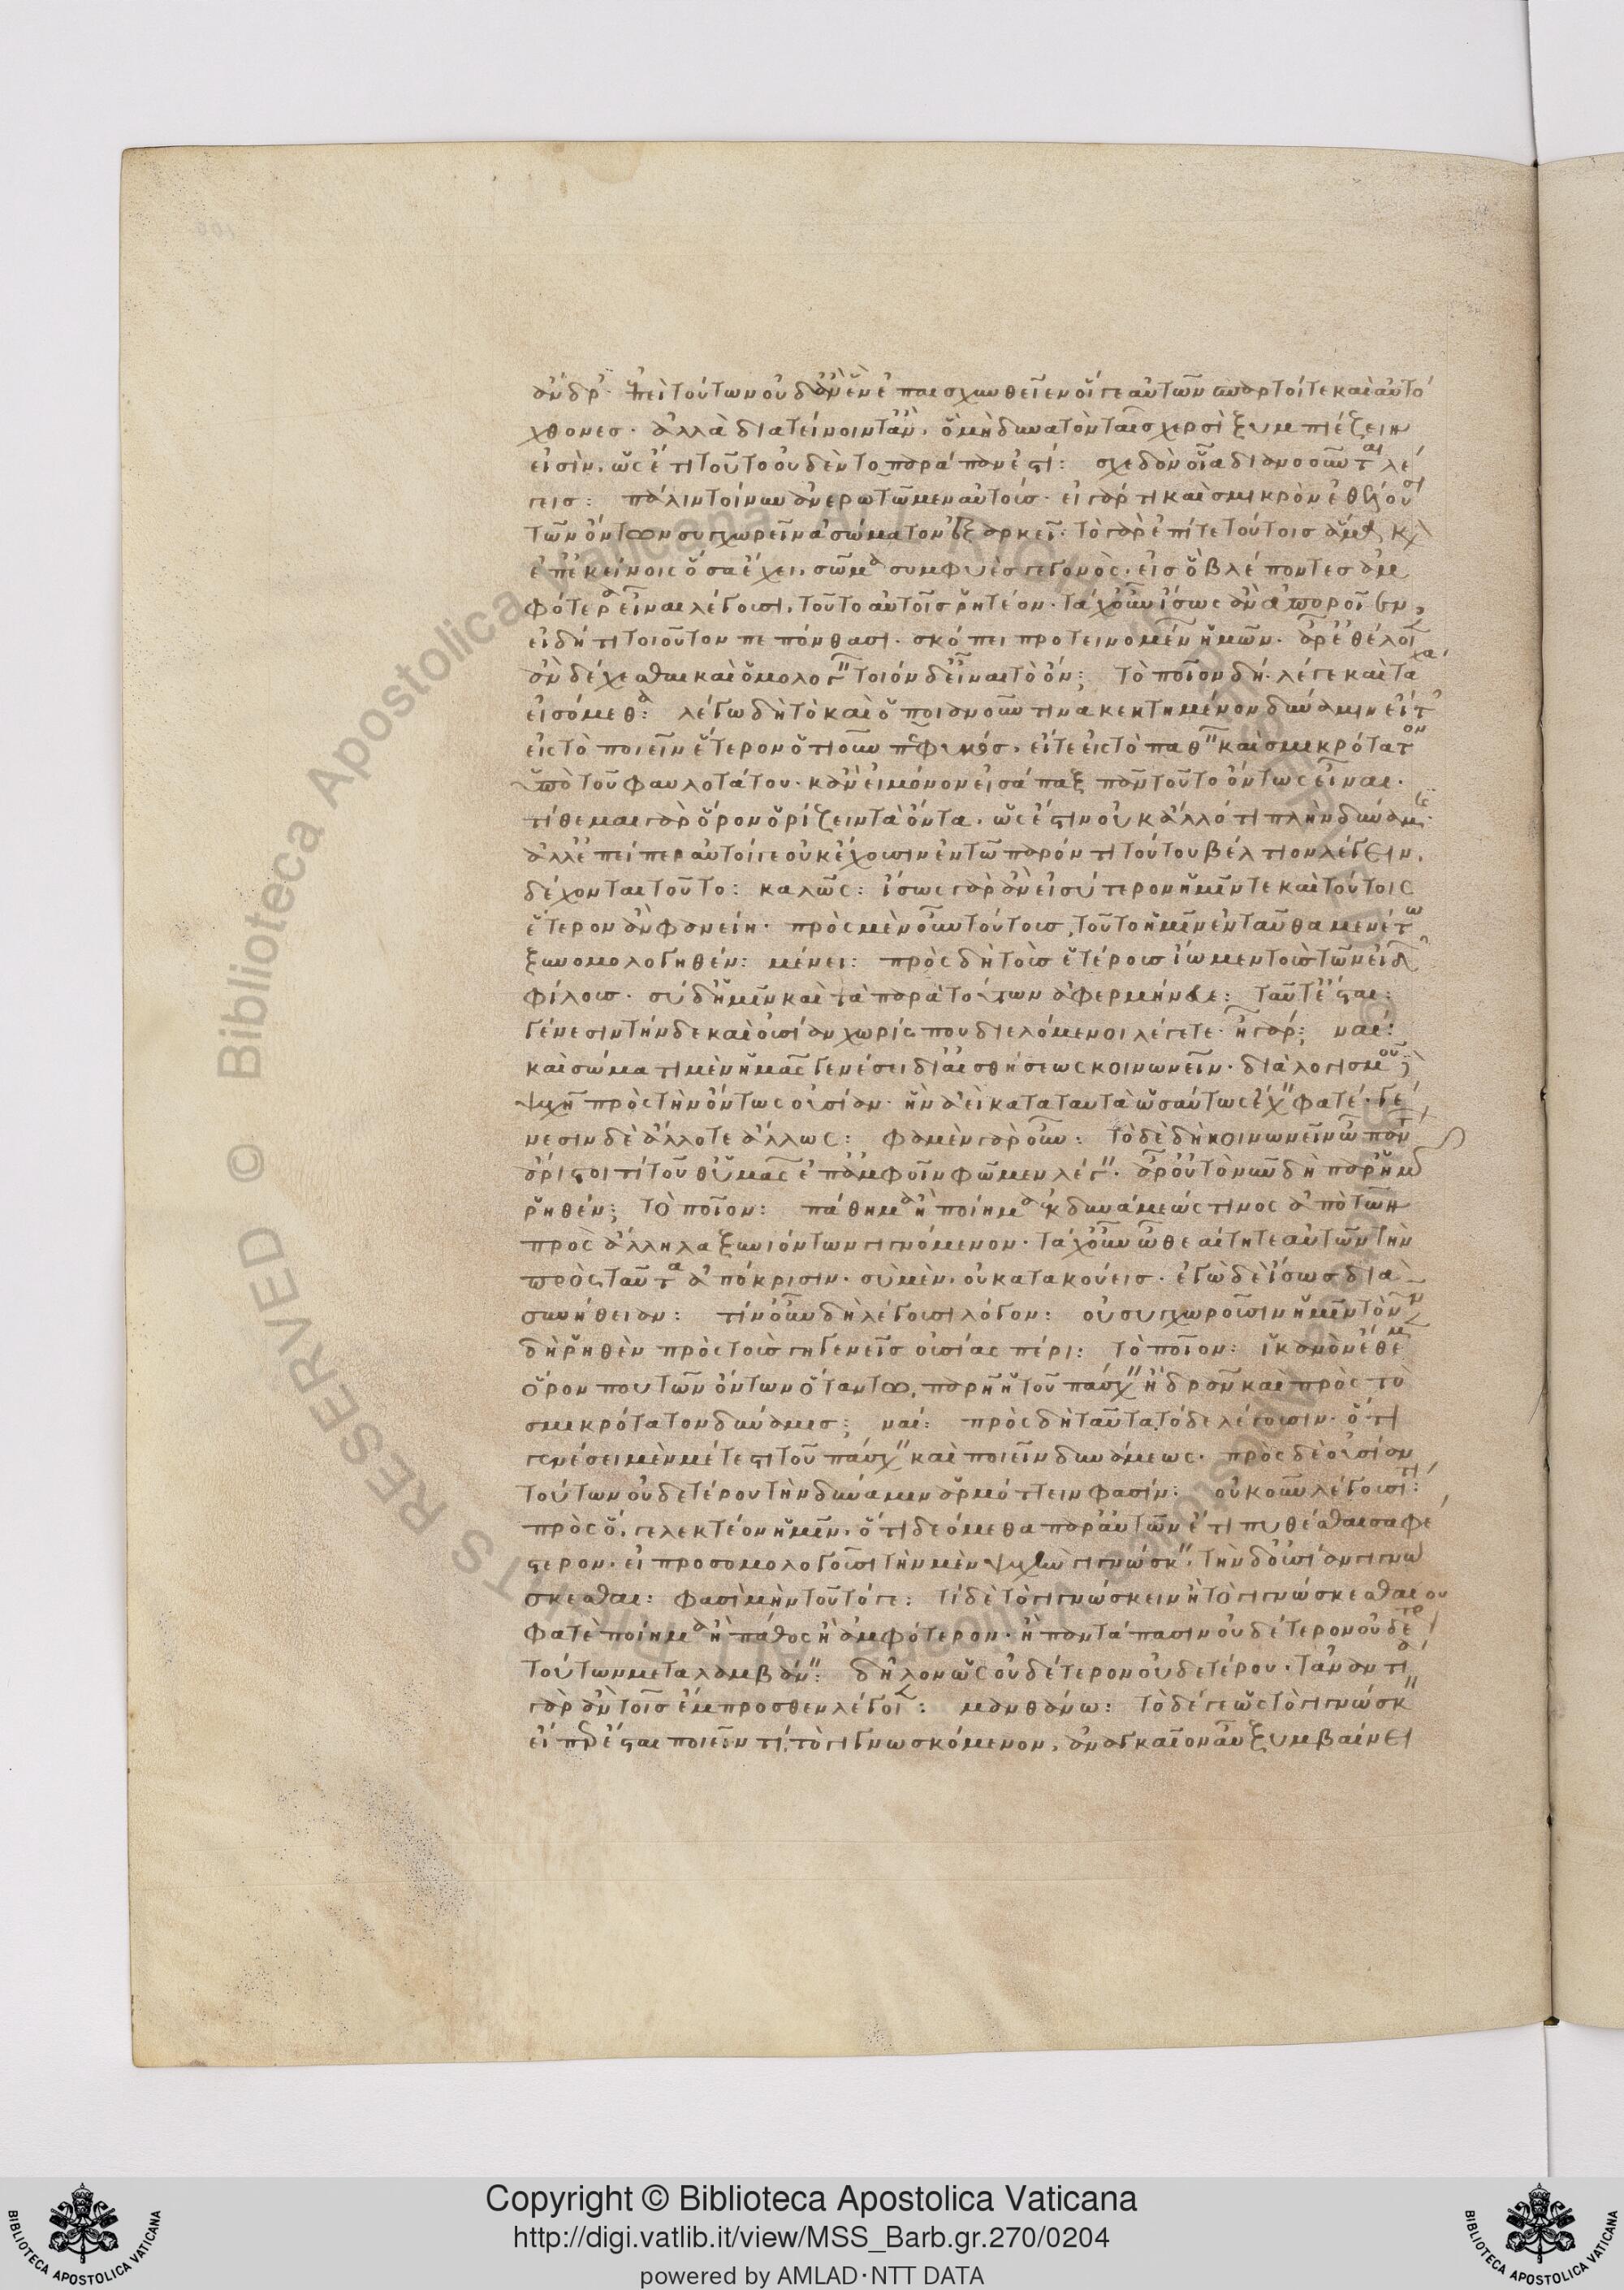 ἄνδρες· ἐπεὶ τούτων οὐδ' ἂν ἓν ἐπαισχυνθεῖεν οἵ γε αὐτῶν σπαρτοί τε καὶ αὐτό
χθονες· ἀλλὰ διατείνοιντ' ἂν, ὃ μὴ δυνατὸν ταῖς χερσὶ ξυμπιέζειν
εἰσὶν, ὡς ἔτι τοῦτο οὐδὲν τοπαράπαν ἐστί: σχεδὸν οἷα διανοοῦνται λέ
γεις: πάλιν τοίνυν ἀνερωτῶμεν αὐτούς· εἰ γάρ τι καὶ σμικρὸν ἐθέλουσι
τῶν ὄντων συγχωρεῖν ἀσώματον ἐξαρκεῖ· τὸ γὰρ ἐπί τε τούτοις ἅμα καὶ
ἐπ' ἐκείνοις ὅσα ἔχει σῶμα συμφυὲς γεγονός, εἰς ὃ βλέποντες ἀμ
φότερα εἶναι λέγουσι, τοῦτο αὐτοῖς ῥητέον· τάχ' οὖν ἴσως ἂν ἀποροῖεν,
εἰ δή τι τοιοῦτον πεπόνθασι· σκόπει προτεινομένων ἡμῶν· ἆρ' ἐθέλοιεν
ἂν δέχεσθαι καὶ ὁμολογεῖν τοιόνδ' εἶναι τὸ ὄν; τὸ ποῖον δή· λέγε καὶ τάχα
εἰσόμεθα: λέγω δὴ τὸ καὶ ὁποιανοῦν τινα κεκτημένον δύναμιν εἴτ'
εἰς τὸ ποιεῖν ἕτερον ὁτιοῦν πεφυκός, εἴτε εἰς τὸ παθεῖν καὶ σμικρότατον
ὑπὸ τοῦ φαυλοτάτου· κἂν εἰ μόνον εἰσάπαξ πᾶν τοῦτο ὄντως εἶναι·
τίθεμαι γὰρ ὅρον ὁρίζειν τὰ ὄντα, ὡς ἔστιν οὐκ ἄλλό τι πλὴν δύναμις·
ἀλλ' ἐπείπερ αὐτοί γε οὐκ ἔχουσιν ἐν τῶ παρόντι τούτου βέλτιον λέγειν,
δέχονται τοῦτο: καλῶς: ἴσως γὰρ ἂν εἰσύστερον ἡμῖν τε καὶ τούτοις
ἕτερον ἂν φανείη· πρὸς μὲν οὖν τούτους, τοῦτο ἡμῖν ἐνταῦθα μενέτω
ξυνομολογηθέν: μένει: πρὸς δὴ τοὺς ἑτέρους ἴωμεν τοὺς τῶν εἰδῶν
φίλους· σὺ δ' ἡμῖν καὶ τὰ παρὰ τούτων ἀφερμήνευε: ταῦτ' ἔσται:
γένεσιν τὴν δὲ καὶ οὐσίαν χωρίς που διελόμενοι λέγετε· ἦ γάρ; ναί:
καὶ σώματι μὲν ἡμᾶς γενέσει δι' αἰσθήσεως κοινωνεῖν· διὰ λογισμοῦ δὲ
ψυχῆ πρὸς τὴν ὄντως οὐσίαν· ἣν ἀεὶ κατὰ ταυτὰ ὡσαύτως ἔχειν φατέ· γέ
νεσιν δὲ ἄλλοτε ἄλλως: φαμὲν γὰρ οὖν: τὸ δὲ δὴ κοινωνεῖν ὦ πάν
άριστοι τί τοῦθ' ὑμᾶς ἐπ' ἀμφοῖν φῶμεν λέγειν· ἆρ' οὐ τὸ νῦν δὴ παρ' ἡμῶν
ῥηθέν; τὸ ποῖον: πάθημα ἢ ποίημα ἐκ δυνάμεώς τινος ἀπὸ τῶν
πρὸς ἄλληλα ξυνιόντων γιγνόμενον· τάχ' οὖν ὦ θεαίτητε αὐτῶν τὴν
πρὸς ταῦτα ἀπόκρισιν· σὺ μὲν, οὐ κατακούεις· ἐγὼ δὲ ἴσως διὰ
συνήθειαν: τίν' οὖν δὴ λέγουσι λόγον: οὐ συγχωροῦσιν ἡμῖν τὸ νῦν
δὴ ῥηθὲν πρὸς τοὺς γηγενεῖς οὐσίας πέρι: τὸ ποῖον: ἱκανὸν ἔθεμεν
ὅρον που τῶν ὄντων ὅταν τω, παρῆ ἡ τοῦ πάσχειν ἢ δρᾶν καὶ πρὸς τὸ
σμικρότατον δύναμις; ναί: πρὸς δὴ ταῦτα τόδε λέγουσιν· ὅτι
γενέσει μὲν μέτεστι τοῦ πάσχειν καὶ ποιεῖν δυνάμεως· πρὸς δὲ οὐσίαν
τούτων οὐδετέρου τὴν δύναμιν ἁρμόττειν φασίν: οὐκοῦν λέγουσί τι:
πρὸς ὅ, γε λεκτέον ἡμῖν, ὅτι δεόμεθα παρ' αὐτῶν ἔτι πυθέσθαι σαφέ
στερον, εἰ προσομολογοῦσι τὴν μὲν ψυχὴν γιγνώσκειν, τὴν δ' οὐσίαν γιγνώ
σκεσθαι: φασὶ μὴν τοῦτό γε: τί δὲ τὸ γιγνώσκειν ἢ τὸ γιγνώσκεσθαι
φατὲ ποίημα ἢ πάθος ἢ ἀμφότερον· ἢ παντάπασιν οὐδέτερον οὐδετέρου
τούτων μεταλαμβάνειν: δῆλον ὡς οὐδέτερον οὐδετέρου· τἀναντία
γὰρ ἂν τοῖς ἔμπροσθεν λέγοιεν: μανθάνω: τὸ δέ γε ὡς τὸ γιγνώσκειν
εἴπερ ἔσται ποιεῖν τί, τὸ γιγνωσκόμενον, ἀναγκαῖον αὖ ξυμβαίνει
Copyright © Biblioteca Apostolica Vaticana
http://digi.vatlib.it/view/MSS_Barb.gr.270/0204
powered by AMLAD·NTT DATA